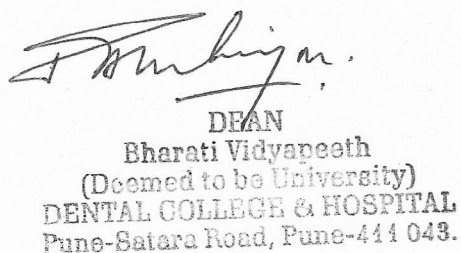 DEAN
Bharati Vidyapeeth
(Deemed to be University)
DENTAL COLLEGE & HOSPITAL
Pune-Satara Road, Pune-411 043.